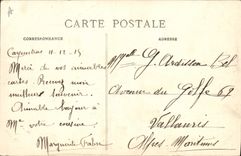 CARTE POSTALE
CORRESPONDANCE
ADRESSE
11-12-15
Merci de vos aimables
cartes. Recevez mon
meilleur souvenir.
Aimable bonjour à
Mme votre cousine
Marguerite Fabre
Melle G. Ardisson
Avenue du Golfe 62
Vallauris
Alpes-Maritimes